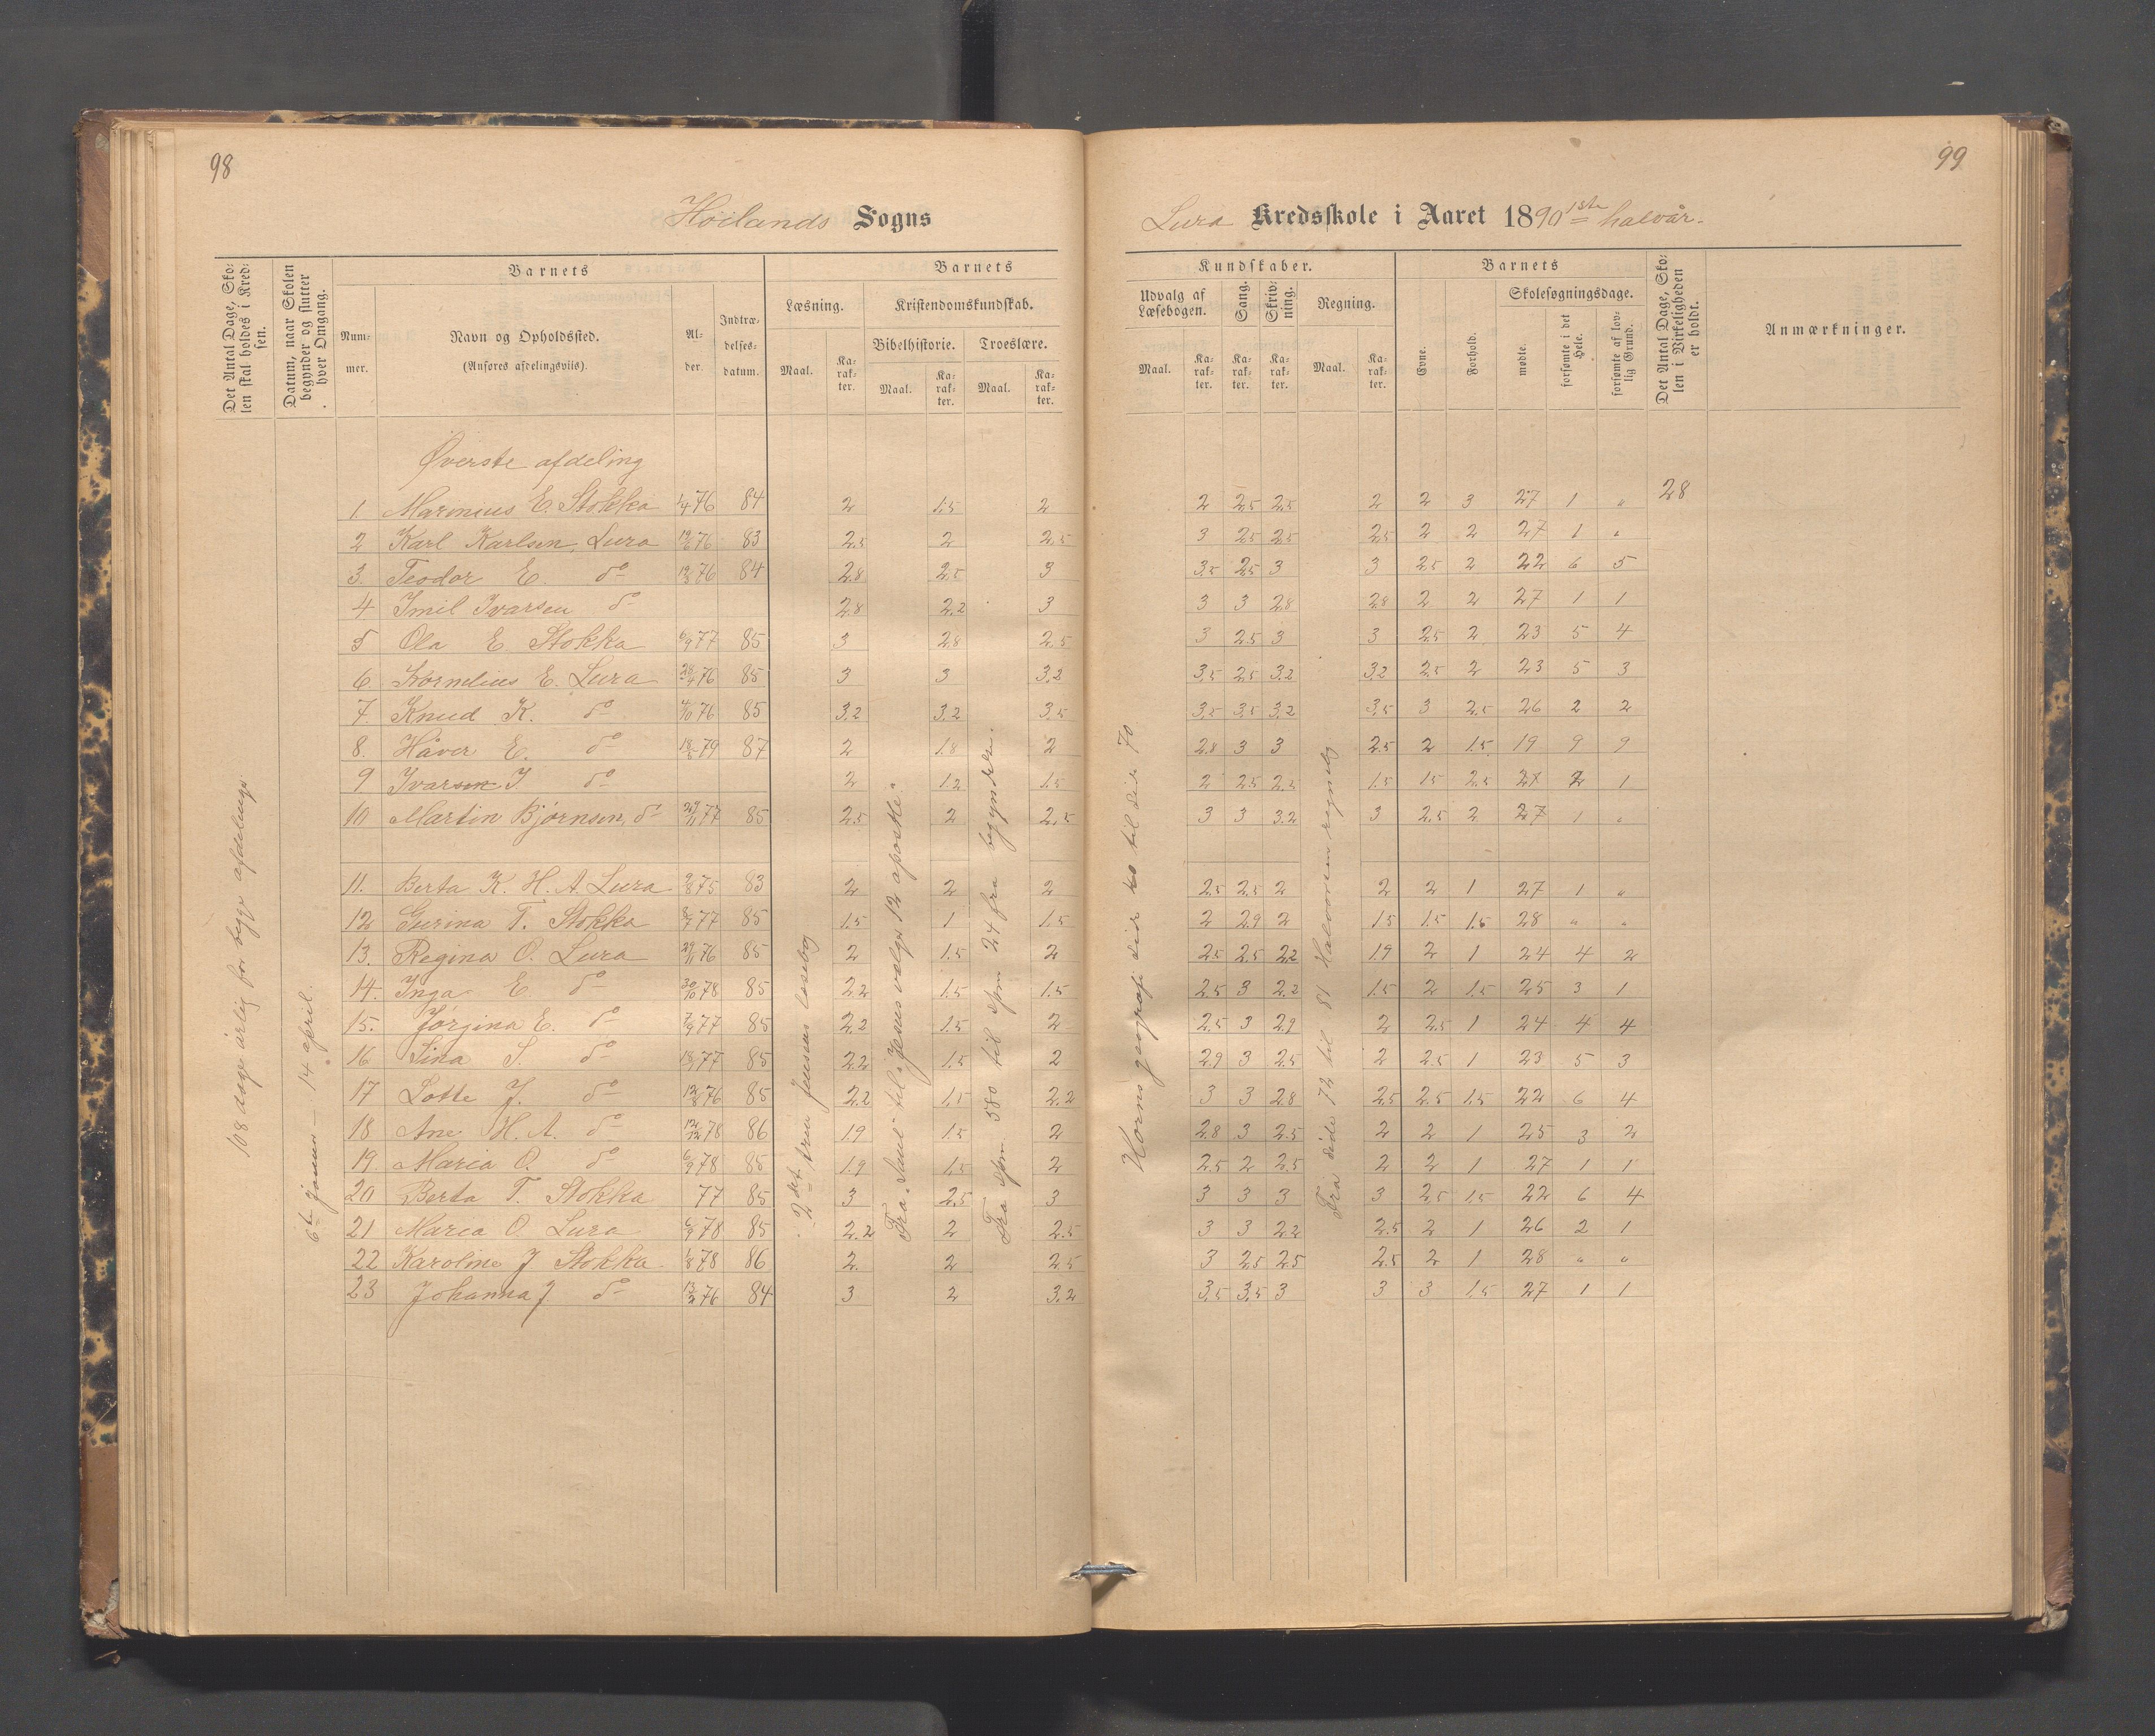 98
99
Høilands Sogns
Lura Kredsskole i Aaret 1890 1ste halvår.
Det Antal Dage, Skolen skal holdes i Kredsen.
Datum, naar Skolen begynder og slutter hver Omgang.
Barnets
Barnets
Nummer.
Navn og Opholdssted.
(Anføres afdelingsviis).
Alder.
Indtrædelsesdatum.
Læsning.
Kristendomskundskab.
Bibelhistorie.
Troeslære.
Maal.
Karakter.
Maal.
Karakter.
Maal.
Karakter.
Kundskaber.
Barnets
Udvalg af Læsebogen.
Sang.
Skrivning.
Regning.
Maal.
Karakter.
Karakter.
Karakter.
Maal.
Karakter.
Evne.
Forhold.
Skolesøgningsdage.
mødte.
forsømte i det Hele.
forsømte af lovlig Grund.
Det Antal Dage, Skolen i Virkeligheden er holdt.
Anmærkninger.
108 dage årlig for begge afdelinger
6te januar – 14 april.
2det trin Jensens læsebog
Fra „Saul" til „Jesus vælger 12 apostle."
Fra spm 380 til spm 24 fra begyndelse.
Horns geografi side 40 til side 70
Fra side 72 til 81 Halvorsen regnebog
Øverste afdeling
1 Marinius E. Stokka 1/4 76 84 2 1.5 2 2 2.5 2.5 2 2 3 27 1 „ 28
2 Karl Karlsen, Lura 76 83 2.5 2 2.5 3 2.5 2.5 2.5 2 2 27 1 „
3. Teodor E. do 76 84 2.8 2.5 3 3.5 2.5 3 3 2.5 2 22 6 5
4 Imil Ivarsen do 2.8 2.2 3 3 3 2.8 2.8 2 2 27 1 1
5 Ola E. Stokka 6/9 77 85 3 2.8 2.5 3 2.5 3 3 2.5 2 23 5 4
6. Kornelius E. Lura 76 85 3 3 3.2 3.5 2.5 3.2 3.2 2.5 2 23 5 3
7. Knud K. do 4/10 76 85 3.2 3.2 3.5 3.5 3.5 3.2 3.5 3 2.5 26 2 2
8. Håver E. do 79 87 2 1.8 2 2.8 3 3 2.5 2 1.5 19 9 9
9 Ivarsen I do 2 1.2 1.5 2 2.5 2.5 1.5 1.5 2.5 2 1
10 Martin Bjørnsen, do 29/11 77 85 2.5 2 2.5 3 3 3.2 3 2.5 2 27 1 „
11. Berta K. H. A. Lura 9/8 75 83 2 2 2 2.5 2.5 2 2 2 1 27 1 „
12 Gurina T. Stokka 77 85 1.5 1 1.5 2 2.9 2 1.5 1.5 1.5 28 „ „
13. Regina O. Lura 29/11 76 85 2 1.5 2 2.5 2.5 2.2 1.9 2 1 24 4 2
14. Inga E do 30/10 78 85 2.2 1.5 1.5 2.5 3 2.2 1.5 2 1.5 25 3 1
15. Jørgina E. do 7/9 77 85 2.2 1.5 2 2.5 3 2.9 2 2.5 1 24 4 4
16 Sina S. do 77 85 2.2 1.5 2 2.9 3 2.5 2 2.5 1 23 5 3
17 Lotte J. do 76 85 2.2 1.5 2.2 3 3 2.8 2.5 2.5 1.5 22 6 4
18 Ane H. A. do 12/12 78 86 1.9 1.5 2 2.8 3 2.5 2 2 1 25 3 2
19. Maria O. do 6/9 78 85 1.9 1.5 2 2.5 2 2.5 2 2 1 27 1 1
20 Berta T. Stokka 77 85 3 2.5 3 3 3 3 3 2.5 1.5 22 6 4
21 Maria O. Lura 6/9 78 85 2.2 2 2.5 3 3 2.2 2.5 2 1 26 2 1
22 Karoline J Stokka 1/8 78 86 2. 2 2.5 3 2.5 2.5 2.5 2 1 28 „ „
23 Johanna J do 76 84 3 2 3.2 3.5 3.5 3 3 3 1.5 27 1 1